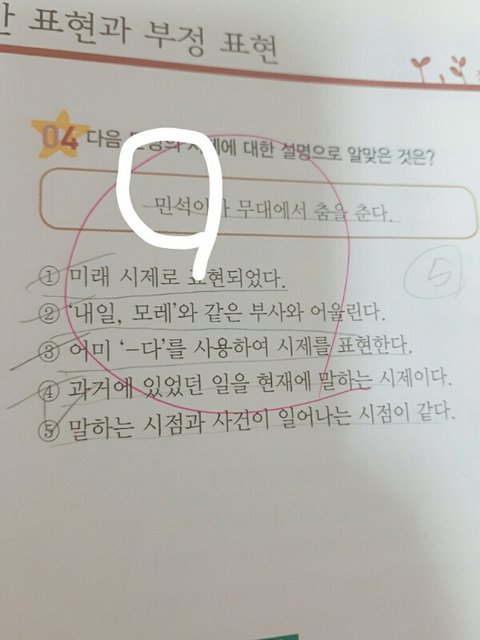 표현과 부정 표현
04 다음 에 대한 설명으로 알맞은 것은?
민석이가 무대에서 춤을 춘다.
① 미래 시제로 표현되었다.
② ‘내일, 모레’와 같은 부사와 어울린다.
③ 어미 ‘–다’를 사용하여 시제를 표현한다.
④ 과거에 있었던 일을 현재에 말하는 시제이다.
⑤ 말하는 시점과 사건이 일어나는 시점이 같다.
5
9